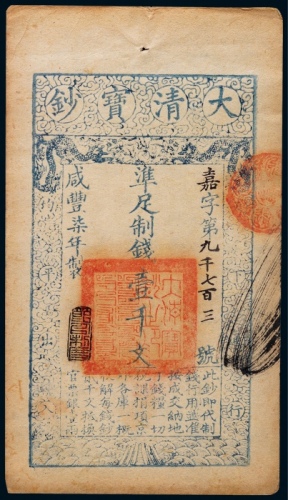 大清寶鈔
嘉字第九千七百三號
準足制錢壹千文
咸豐柒年製
均平出入
此鈔即代制
錢行用並准
按成交納地
丁錢糧一切
稅課捐項京
外各庫一概
收解每錢鈔
貳千文抵換
官票銀壹兩